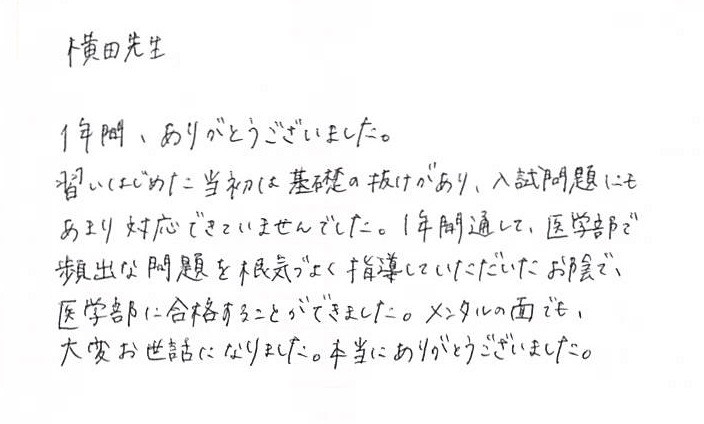 横田先生
1年間、ありがとうございました。
習いはじめた当初は基礎の抜けがあり、入試問題にも
あまり対応できていませんでした。1年間通して、医学部で
頻出な問題を根気づよく指導していただいたお陰で、
医学部に合格することができました。メンタルの面でも、
大変お世話になりました。本当にありがとうございました。